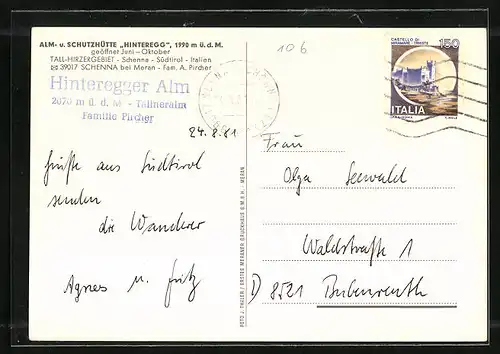 ALM- u. SCHUTZHÜTTE „HINTEREGG", 1990 m ü. d. M.
geöffnet Juni – Oktober
TALL-HIRZERGEBIET - Schenna - Südtirol - Italien
39017 SCHENNA bei Meran - Fam. A. Pircher
Hinteregger Alm
2070 m ü. d. M - Tallneralm
Familie Pircher
24.8.81
Grüße aus Südtirol
senden
die Wanderer
Agnes u. Fritz
FOTO J. THALER / ERSTES MERANER DRUCKHAUS G.M.B.H. - MERAN
106
CASTELLO DI
MIRAMARE - TRIESTE
150
ITALIA
Frau
Olga Seewald
Waldstraße 1
D) 8521 Bubenreuth